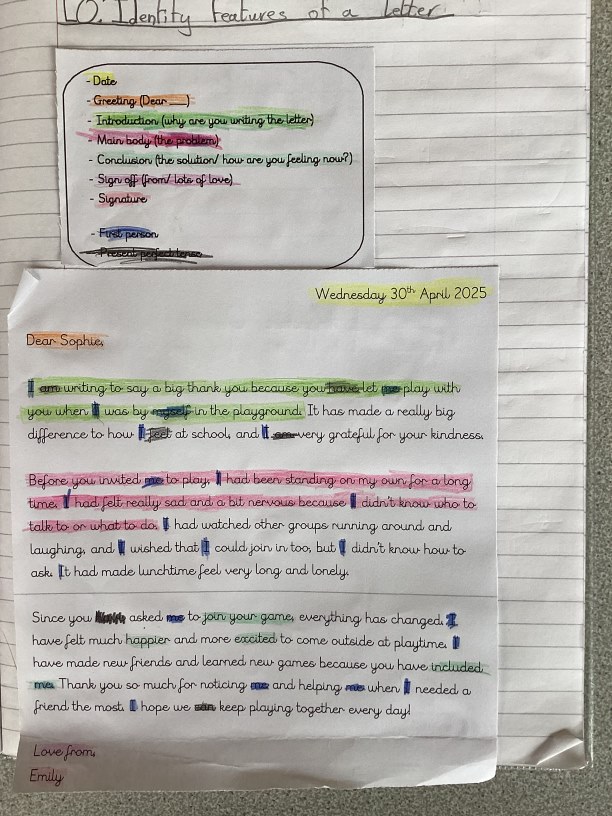 LO: Identify features of a letter
- Date
- Greeting (Dear ___)
- Introduction (why are you writing the letter)
- Main body (the problem)
- Conclusion (the solution/ how are you feeling now?)
- Sign off (from/ lots of love)
- Signature
- First person
- Present perfect tense
Wednesday 30th April 2025
Dear Sophie,
I am writing to say a big thank you because you have let me play with
you when I was by myself in the playground. It has made a really big
difference to how I feel at school, and I am very grateful for your kindness.
Before you invited me to play, I had been standing on my own for a long
time. I had felt really sad and a bit nervous because I didn't know who to
talk to or what to do. I had watched other groups running around and
laughing, and I wished that I could join in too, but I didn't know how to
ask. It had made lunchtime feel very long and lonely.
Since you asked me to join your game, everything has changed. I
have felt much happier and more excited to come outside at playtime. I
have made new friends and learned new games because you have included
me. Thank you so much for noticing me and helping me when I needed a
friend the most. I hope we can keep playing together every day!
Love from,
Emily